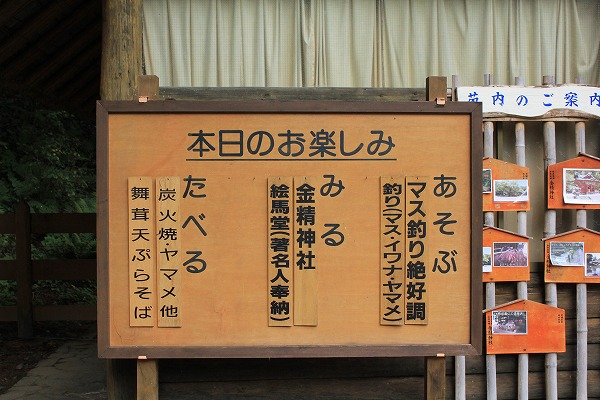 本日のお楽しみ
あそぶ
マス釣り絶好調
釣り(マス・イワナ・ヤマメ)
みる
金精神社
絵馬堂(著名人奉納)
たべる
炭火焼・ヤマメ他
舞茸天ぷらそば
苑内のご案内